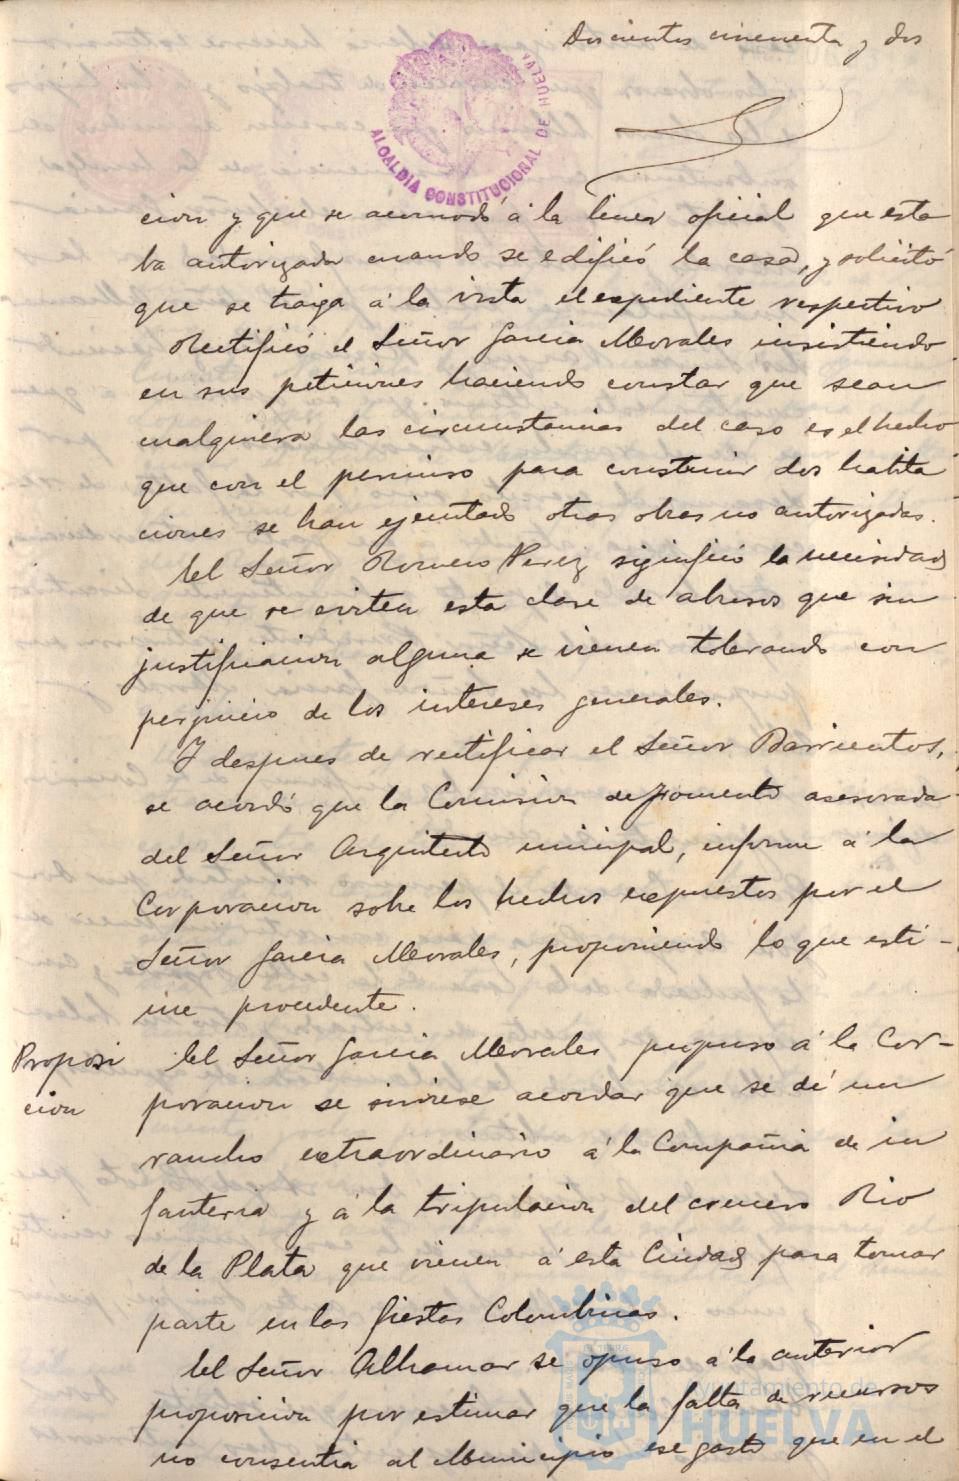 Doscientos cincuenta y dos
ALCALDIA CONSTITUCIONAL DE HUELVA
cion y que se acomodó á la linea oficial que esta
ba autorizada cuando se edificó la casa, y solicitó
que se traiga á la vista el expediente respectivo
Rectificó el Señor Garcia Morales insistiendo
en sus peticiones haciendo constar que sean
cualquiera las circunstancias del caso es el hecho
que con el permiso para construir dos habita
ciones se han ejecutado otras obras no autorizadas.
El Señor Romero Perez significó la necesidad
de que se eviten esta clase de abusos que sin
justificacion alguna se vienen tolerando con
perjuicio de los intereses generales.
Y despues de rectificar el Señor Barrientos,
se acordó que la Comision de fomento asesorada
del Señor Arquitecto municipal, informe á la
Corporacion sobre los hechos expuestos por el
Señor Garcia Morales, proponiendo lo que esti-
me procedente.
Proposi
cion
El Señor Garcia Morales propuso á la Cor-
poracion se sirviese acordar que se dé un
rancho extraordinario á la Compañia de in
fanteria y á la tripulacion del crucero Rio
de la Plata que vienen á esta Ciudad para tomar
parte en las fiestas Colombinas.
El Señor Alhamar se opuso á la anterior
proposicion por estimar que la falta de recursos
no consentia al Municipio ese gasto que en el
Ayuntamiento de
HUELVA